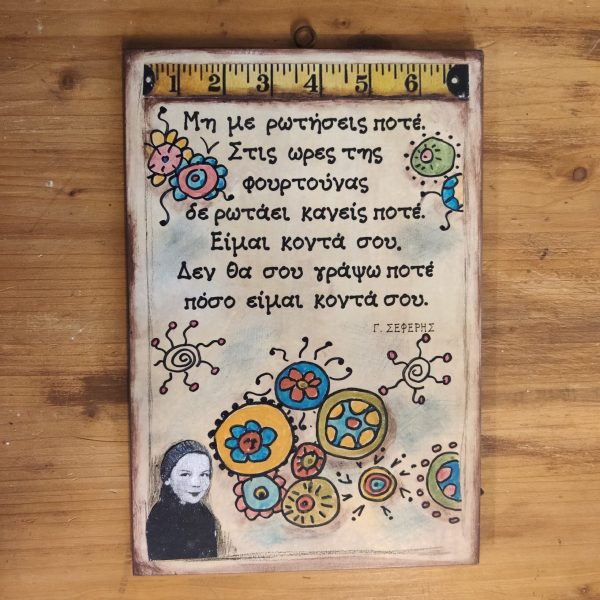 1 2 3 4 5 6
Μη με ρωτήσεις ποτέ.
Στις ωρες της
φουρτούνας
δε ρωτάει κανείς ποτέ.
Είμαι κοντά σου.
Δεν θα σου γράψω ποτέ
πόσο είμαι κοντά σου.
Γ. ΣΕΦΕΡΗΣ